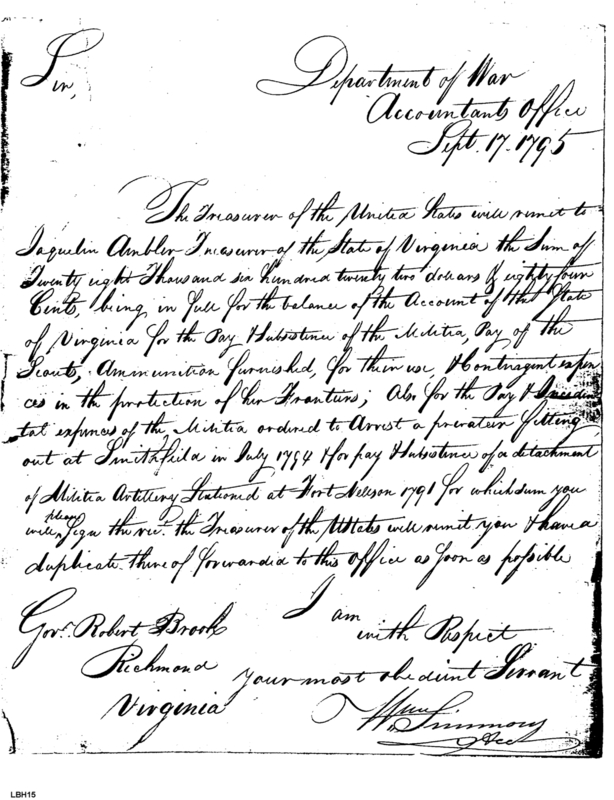 Sir,
Department of War
Accountants Office
Sept. 17. 1795
The Treasurer of the United States will remit to
Jaquelin Ambler Treasurer of the State of Virginia the Sum of
Twenty eight Thousand six hundred twenty two dollars & eighty four
Cents, being in full for the balance of the Account of the State
of Virginia for the Pay & Subsistence of the Militia, Pay of the
Scouts, Ammunition furnished, for their use, & Contingent expen
ces in the protection of her Frontiers, Also for the Pay & Inciden
tal expences of the Militia ordered to Arrest a privateer fitting
out at Smithfield in July 1794 & for pay & Subsistence of a detachment
of Militia Artillery Stationed at Fort Nelson 1791 for which sum you
will please Sign the rec.t the Treasurer of the UStates will remit you & have a
duplicate thereof forwarded to this office as soon as possible
I am
Gov.r Robert Brook
with Respect
Richmond
your most obedient Servant
Virginia
Wm. Simmons
Acc
LBH15